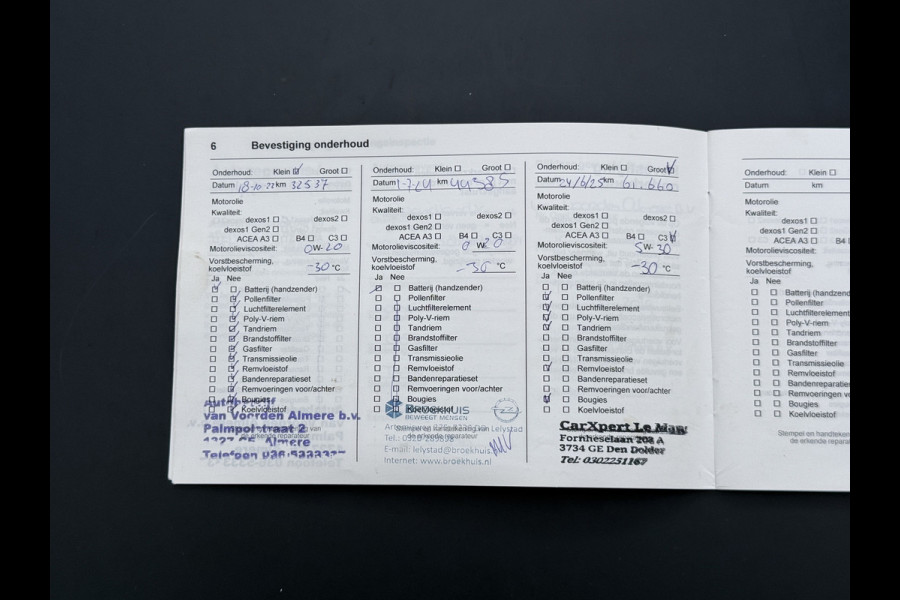 6 Bevestiging onderhoud
Onderhoud: Klein Groot
Datum 18-10 22 km 32537
Motorolie
Kwaliteit:
dexos1 dexos2
dexos1 Gen2
ACEA A3 B4 C3
Motorolieviscositeit: 0W-20
Vorstbescherming,
koelvloeistof -30 °C
Ja Nee
Batterij (handzender)
Pollenfilter
Luchtfilterelement
Poly-V-riem
Tandriem
Brandstoffilter
Gasfilter
Transmissieolie
Remvloeistof
Bandenreparatieset
Remvoeringen voor/achter
Bougies
Koelvloeistof
van Voorden Almere b.v.
Palmpolstraat 2
Almere
Telefoon
Onderhoud: Klein Groot
Datum km 44585
Motorolie
Kwaliteit:
dexos1 dexos2
dexos1 Gen2
ACEA A3 B4 C3
Motorolieviscositeit: 0 W- 20
Vorstbescherming,
koelvloeistof -30 °C
Ja Nee
Batterij (handzender)
Pollenfilter
Luchtfilterelement
Poly-V-riem
Tandriem
Brandstoffilter
Gasfilter
Transmissieolie
Remvloeistof
Bandenreparatieset
Remvoeringen voor/achter
Bougies
Koelvloeistof
BROEKHUIS
BEWEEGT MENSEN
Lelystad
de erkende reparateur
E-mail: lelystad@broekhuis.nl
Internet: www.broekhuis.nl
Onderhoud: Klein Groot
Datum 24/6/25 km 61.660
Motorolie
Kwaliteit:
dexos1 dexos2
dexos1 Gen2
ACEA A3 B4 C3
Motorolieviscositeit: 5W-30
Vorstbescherming,
koelvloeistof -30 °C
Ja Nee
Batterij (handzender)
Pollenfilter
Luchtfilterelement
Poly-V-riem
Tandriem
Brandstoffilter
Gasfilter
Transmissieolie
Remvloeistof
Bandenreparatieset
Remvoeringen voor/achter
Bougies
Koelvloeistof
CarXpert Le Mans
Fornheselaan 208 A
3734 GE Den Dolder
Tel: 0302251167
Onderhoud: Klein
Datum km
Motorolie
Kwaliteit:
dexos1
dexos1 Gen2
ACEA A3 B4
Motorolieviscositeit:
Vorstbescherming,
koelvloeistof
Ja Nee
Batterij (handzend
Pollenfilter
Luchtfilterelement
Poly-V-riem
Tandriem
Brandstoffilter
Gasfilter
Transmissieolie
Remvloeistof
Bandenreparatiese
Remvoeringen voor
Bougies
Koelvloeistof
Stempel en handteken
de erkende repara